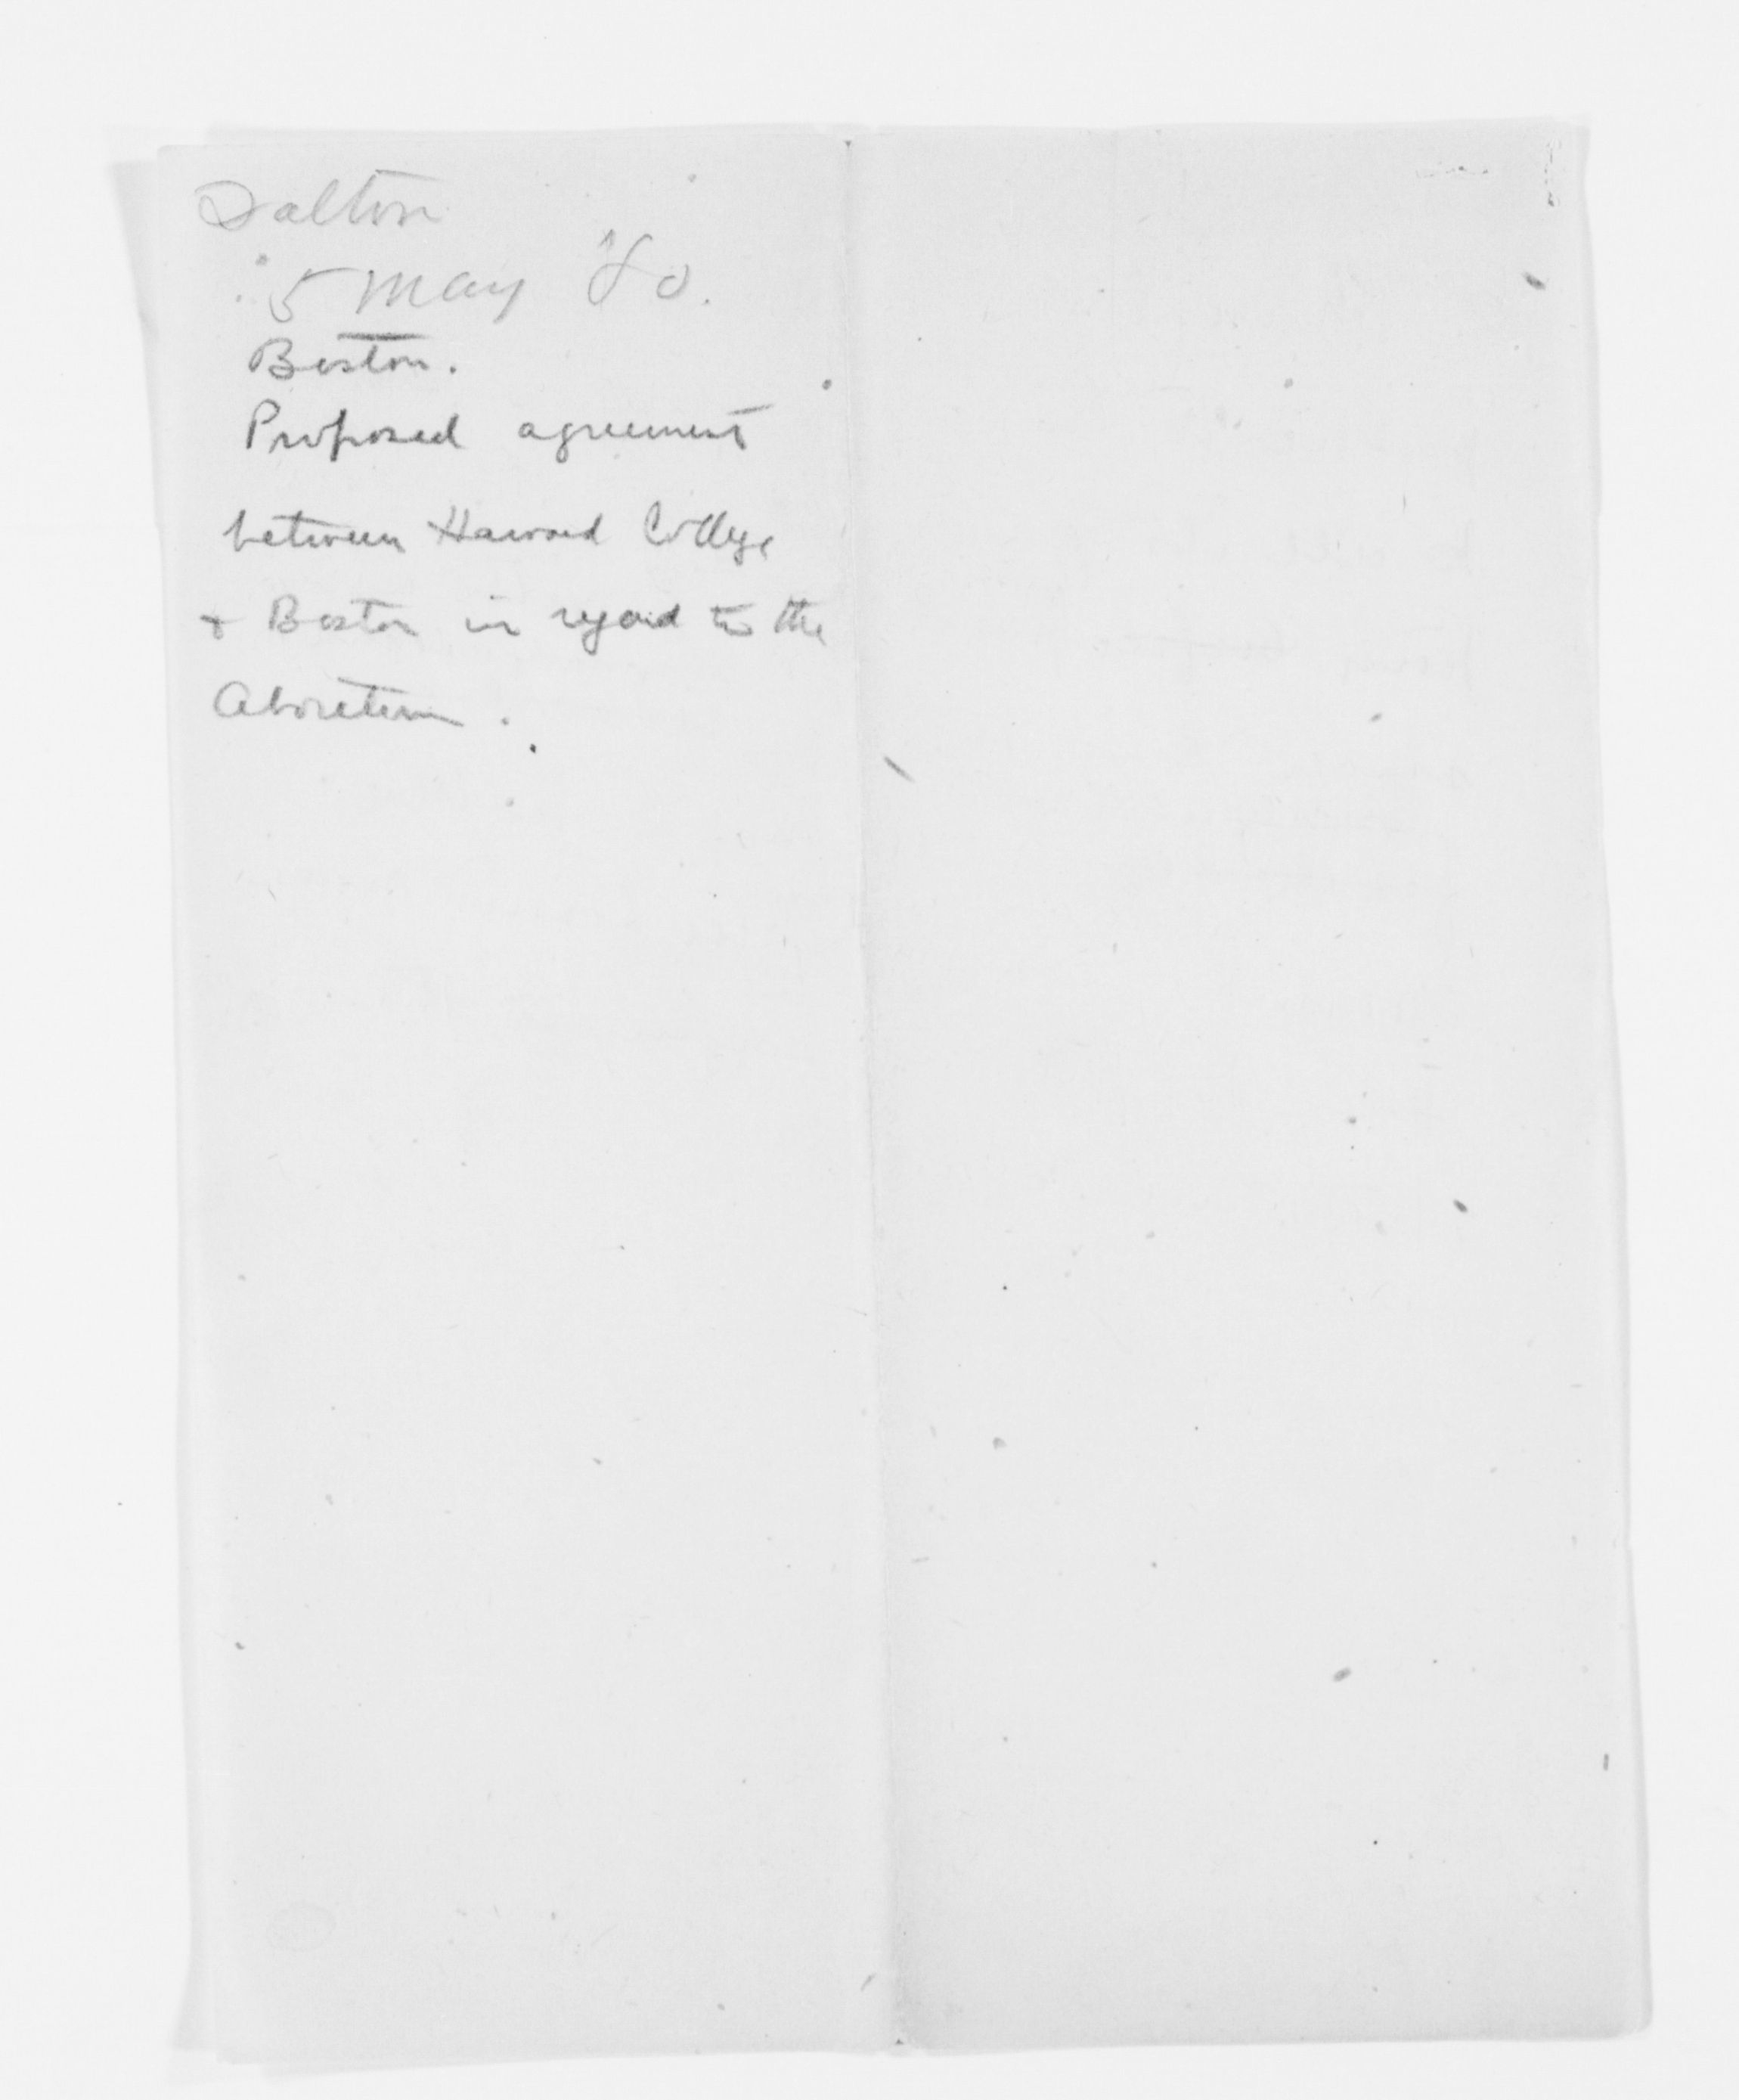 Dalton
5 May '80.
Boston.
Proposed agreement
between Harvard College
& Boston in regard to the
Arboretum.